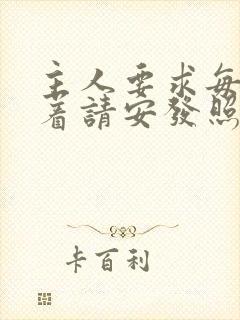 主人要求每
著請安發照
卡百利